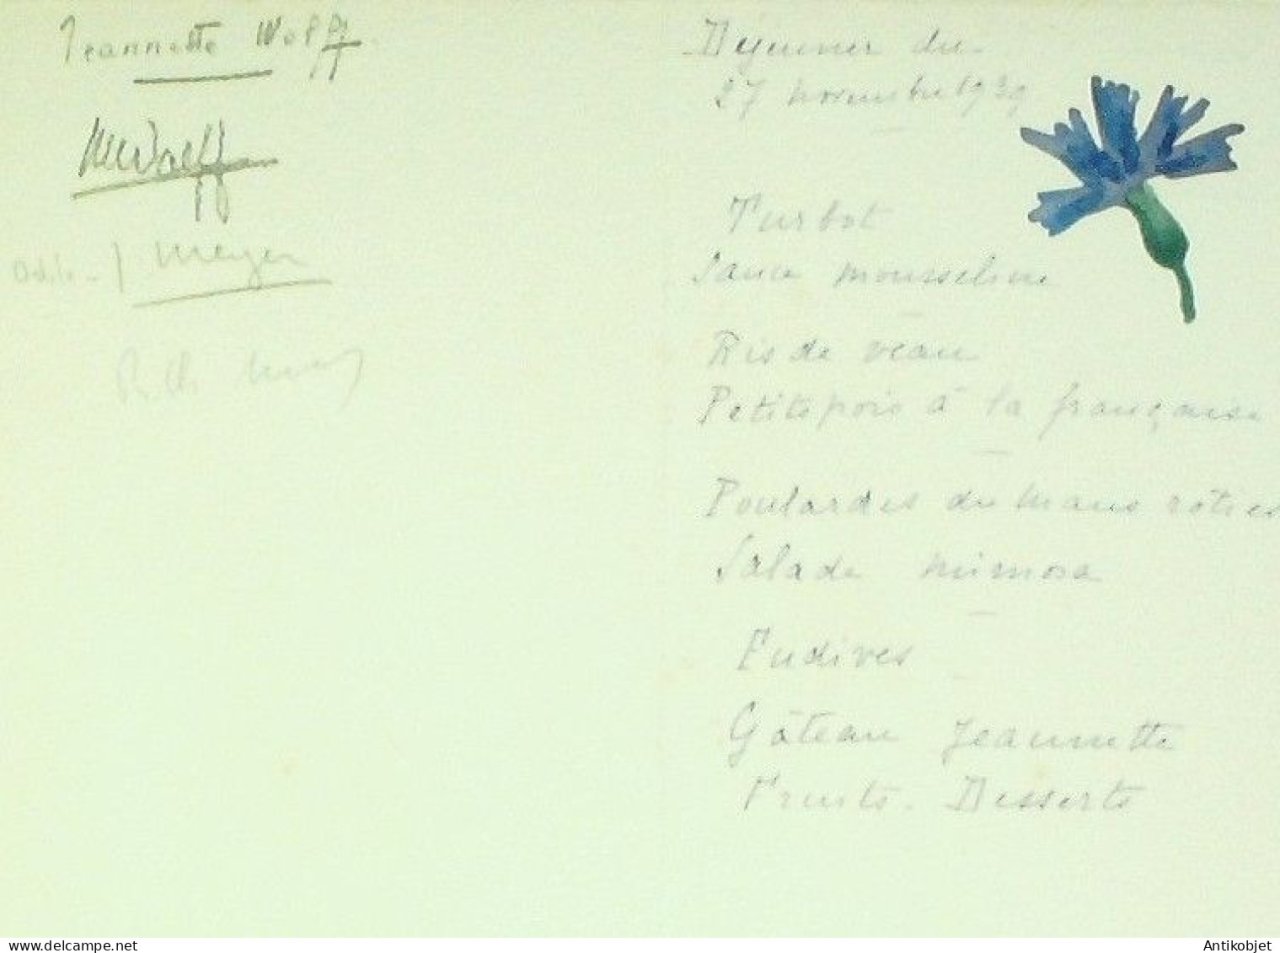 Jeannette Wolff
MWolff
Meyer
Déjeuner du
27 novembre 1929
Turbot
Sauce mousseline
Ris de veau
Petits pois à la française
Poulardes du Mans rôties
Salade mimosa
Endives
Gâteau Jeannette
Fruits. Desserts
www.delcampe.net
Antikobjet